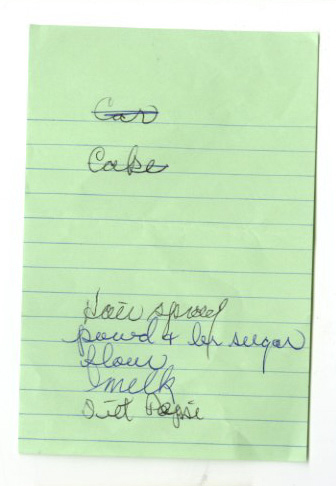 Car
Cake
Hair spray
powd + br sugar
flour
milk
Diet Pepsi